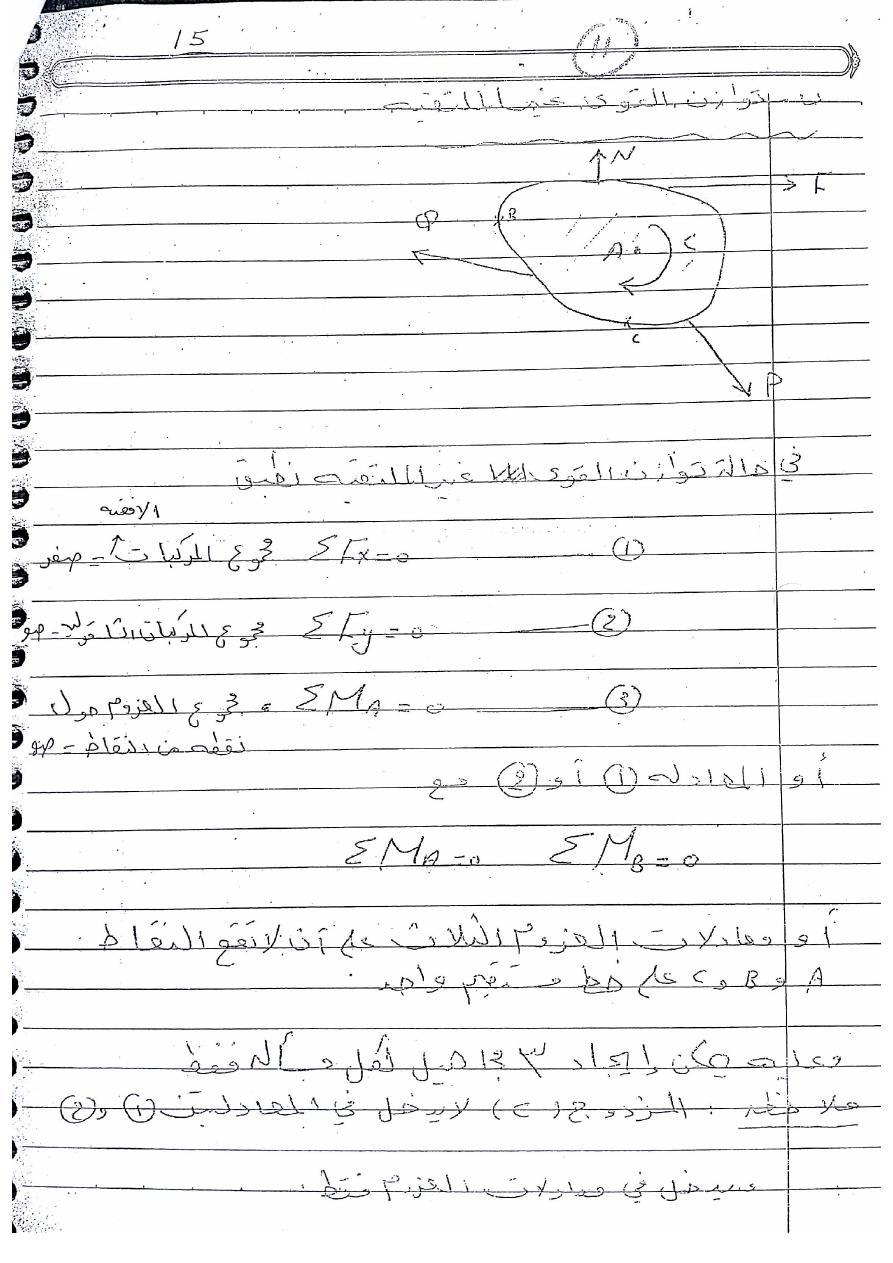 15
11
ب - توازن القوى غير الملتقيه
N
F
B
Q
A
C
C
P
في حالة توازن القوى غير الملتقيه نطبق
الافقيه
① ΣFx = 0 مجموع المركبات = صفر
② ΣFy = 0 مجموع المركبات الشاقوليه = صفر
③ ΣMA = 0 مجموع العزوم حول
نقطه من النقاط = صفر
أو المعادله ① أو ② مع
ΣMA = 0 ΣMB = 0
أو معادلات العزوم الثلاث على أن لا تقع النقاط
A و B و C على خط مستقيم واحد.
وعليه يمكن إيجاد ٣ مجاهيل لكل مسأله فقط
ملاحظه : المزدوج (C) لا يدخل في المعادلتين ① و ②
سيدخل في معادلات العزوم فقط.